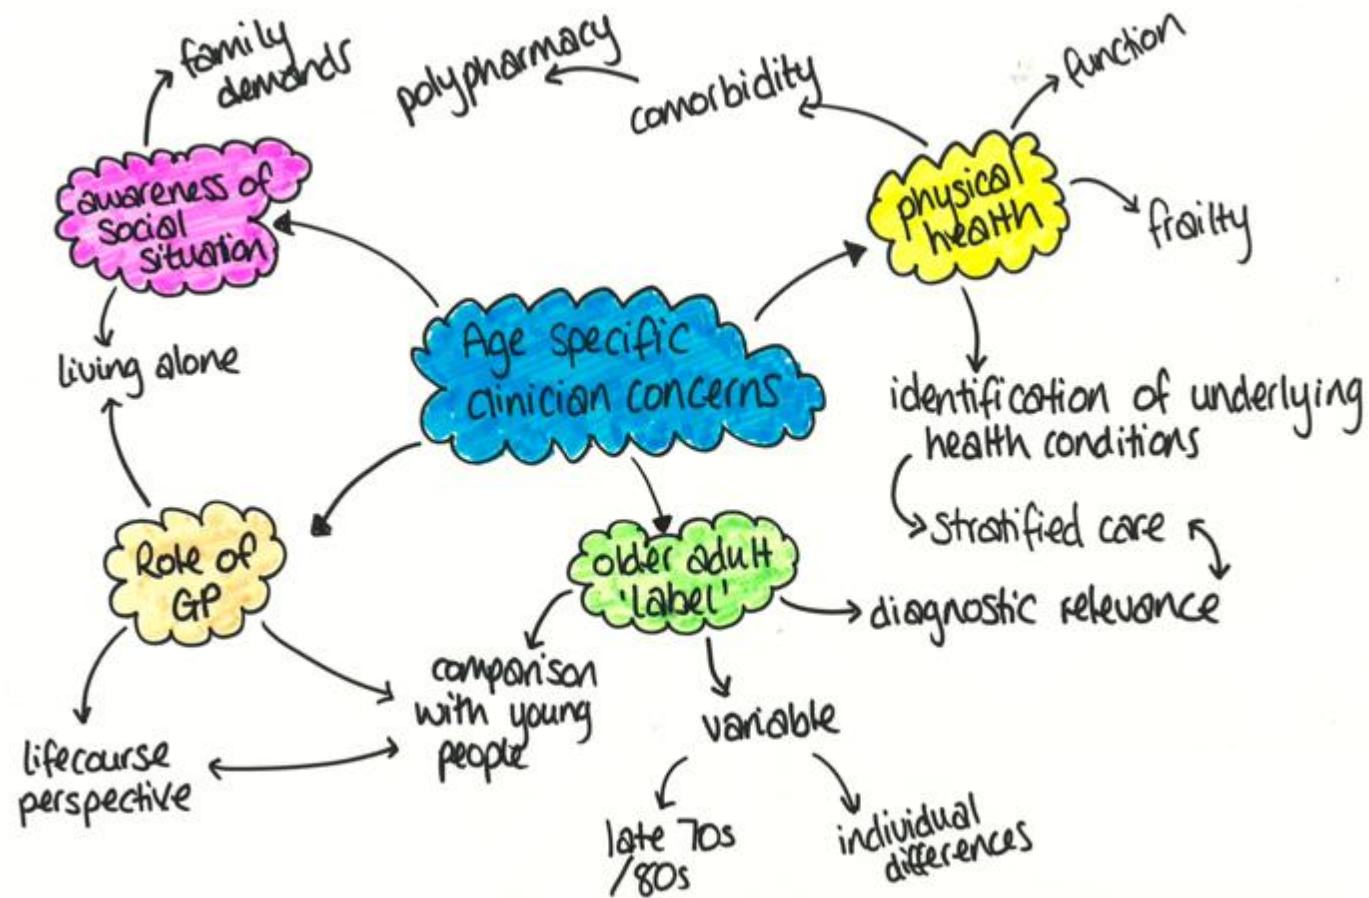 family
demands
polypharmacy
comorbidity
function
awareness of
social
situation
physical
health
frailty
living alone
Age specific
clinician concerns
identification of underlying
health conditions
stratified care
Role of
GP
older adult
'label'
diagnostic relevance
comparison
with young
people
variable
lifecourse
perspective
late 70s
/80s
individual
differences